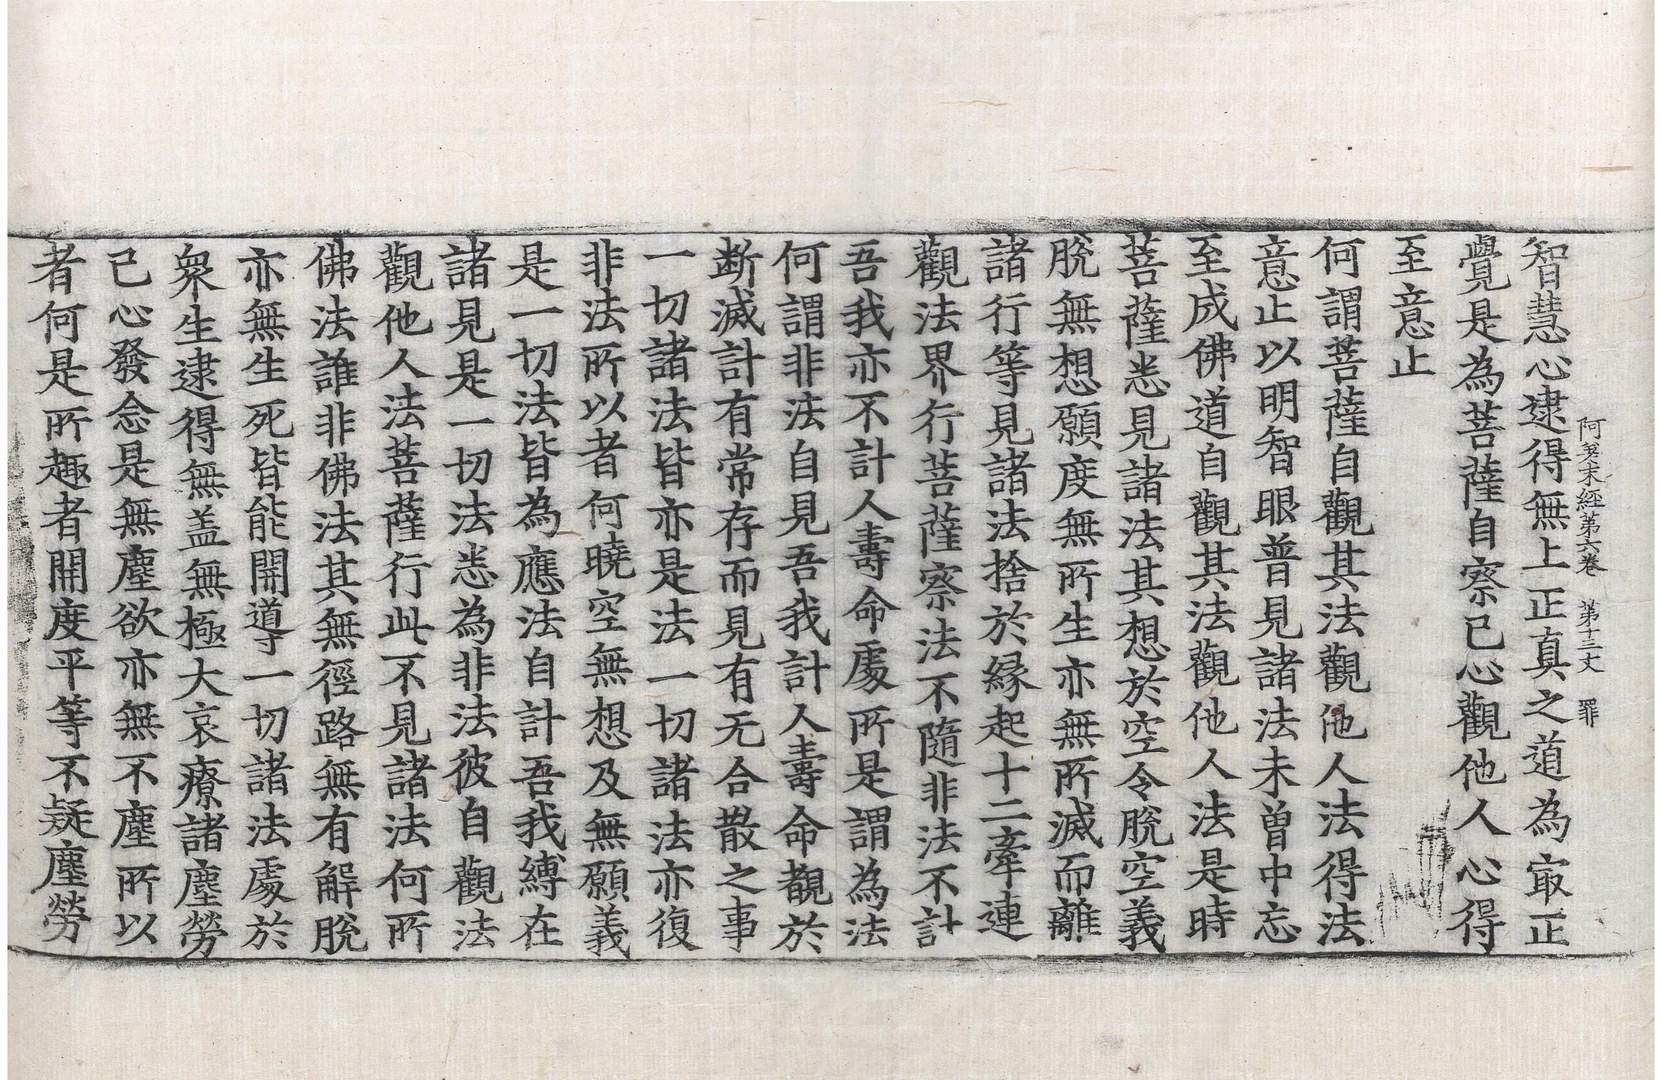 智慧心逮得無上正真之道為㝡正
阿差末經第六卷 第十三丈 罪
覺是為菩薩自察己心觀他人心得
至意止
何謂菩薩自觀其法觀他人法得法
意止以明智眼普見諸法未曽中忘
至成佛道自觀其法觀他人法是時
菩薩悉見諸法其想於空令脫空義
脫無想願度無所生亦無所滅而離
諸行等見諸法捨於縁起十二牽連
觀法界行菩薩察法不隨非法不計
吾我亦不計人壽命處所是謂為法
何謂非法自見吾我計人壽命覩於
断滅計有常存而見有无合散之事
一切諸法皆亦是法一切諸法亦復
非法所以者何曉空無想及無願義
是一切法皆為應法自計吾我縛在
諸見是一切法悉為非法彼自觀法
觀他人法菩薩行此不見諸法何所
佛法誰非佛法其無徑路無有解脫
亦無生死皆能開導一切諸法處於
衆生逮得無盖無極大哀療諸塵勞
己心發念是無塵欲亦無不塵所以
者何是所趣者開度平等不疑塵勞